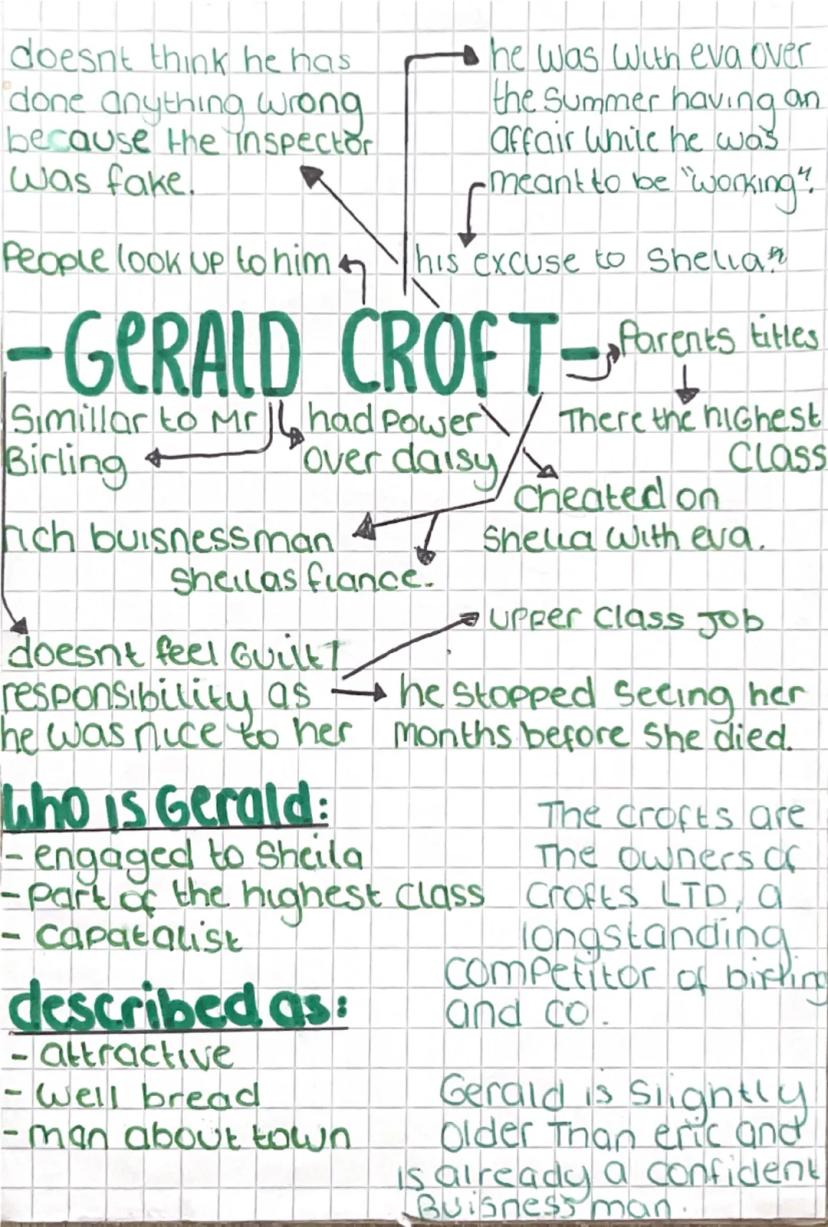 doesnt think he has
done anything wrong
because the inspector
was fake.
he was with eva over
the summer having an
affair while he was
meant to be "working".
People look up to him
his excuse to Sheila"
-GERALD CROFT-
Parents titles
There the highest
Class
Simillar to Mr
Birling
had power
over daisy
Cheated on
Sheila with eva.
rich buisnessman
Sheilas fiance.
upper class job
doesnt feel guilt/
responsibility as
he was nice to her
he stopped seeing her
months before she died.
Who is Gerald:
- engaged to Sheila
- Part of the highest class
- capatalist
The crofts are
The owners of
Crofts LTD, a
longstanding
competitor of birling
and co.
described as:
- attractive
- well bread
- man about town
Gerald is slightly
older Than eric and
is already a confident
Buisness man.